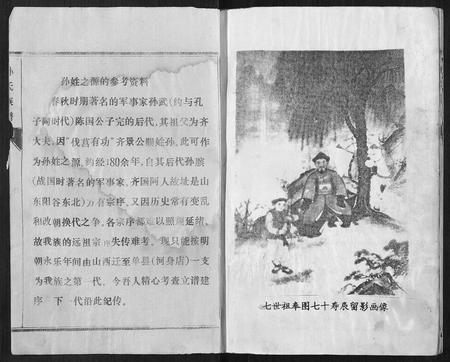 孙氏族谱
孙姓之源的参考资料
春秋时期著名的军事家孙武(约与孔
子同时代)陈国公子完的后代,其祖父为齐
大夫,因"伐莒有功"齐景公赐姓孙,此可作
为孙姓之源,约经180余年,自其后代孙膑
(战国时著名的军事家、齐国阿人故址是山
东阳谷东北)方有宗序,又因历史常有变乱
和改朝换代之争,各宗序都难以照规延绪,
故我族的远祖宗序失传难考。现只能按明
朝永乐年间由山西迁至单县(河身店)一支
为我族之第一代,今吾人精心考查立谱建
序 下一代沿此纪传。
七世祖奉图七十寿辰留影画像